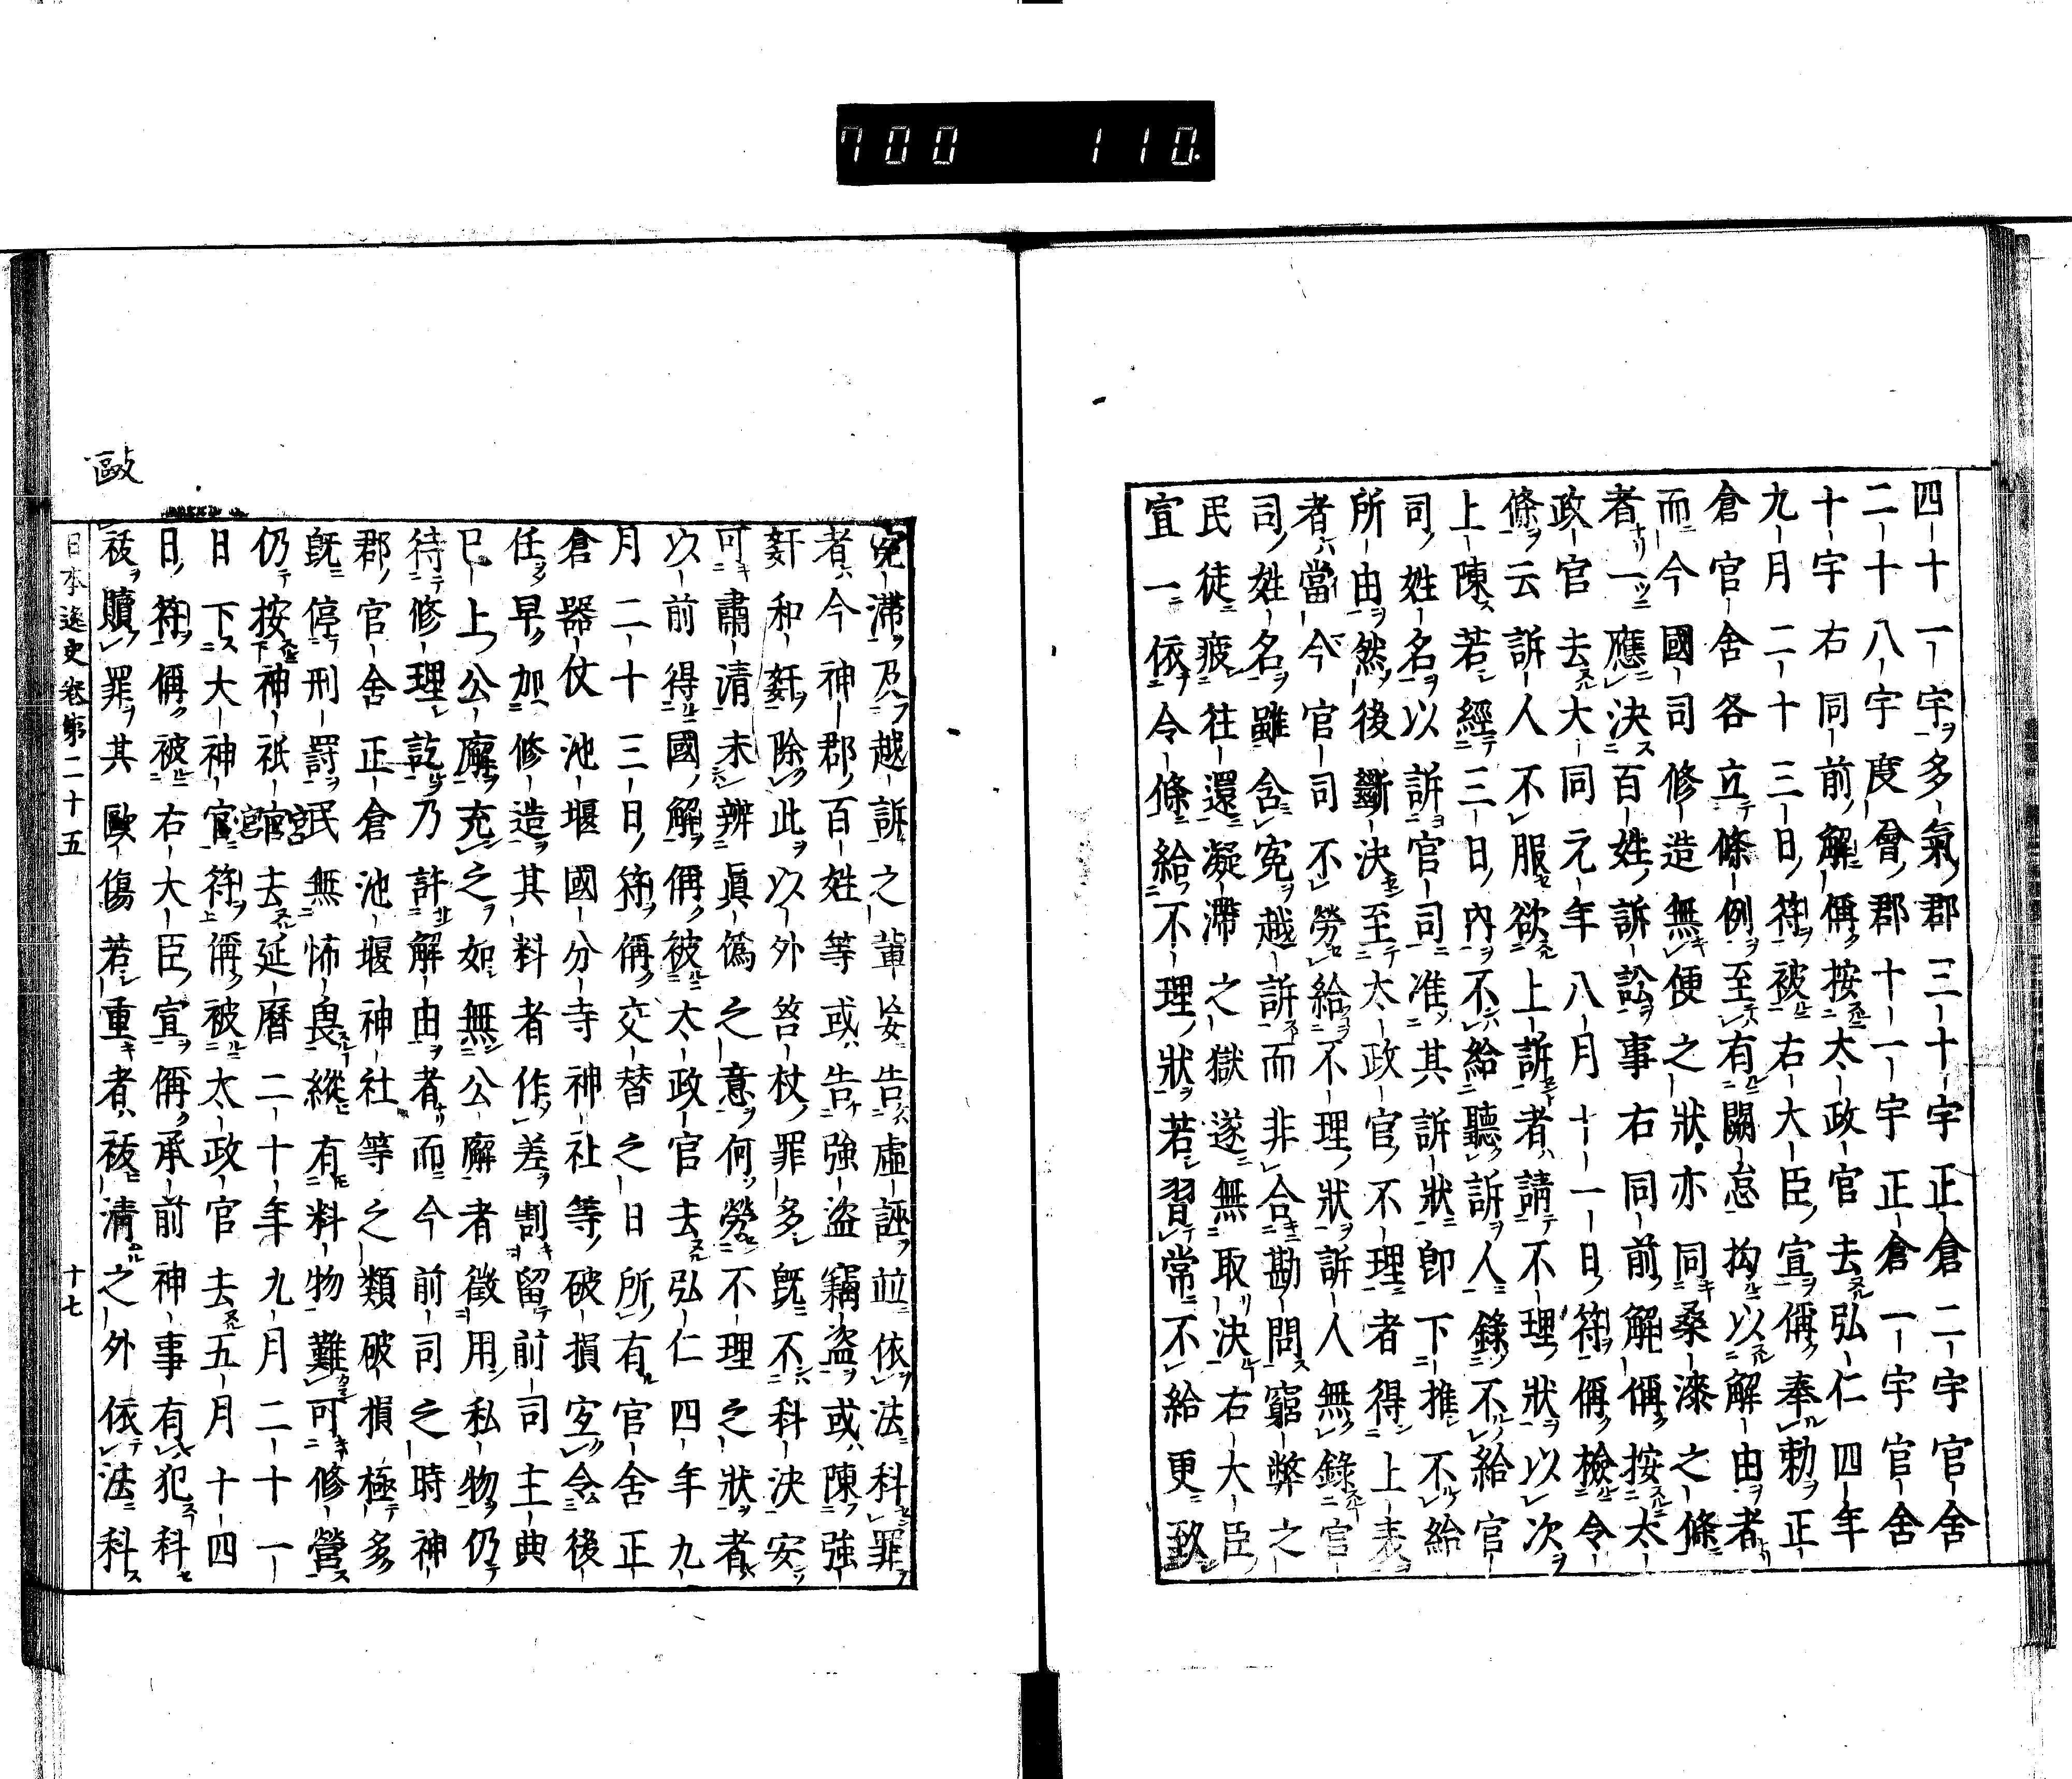 700 110.
四十一宇多氣郡三十宇正倉二宇官舍
二十八宇度會郡十一宇正倉一宇官舍
十宇右同前解偁按太政官去弘仁四年
九月二十三日符被右大臣宣偁奉勅正
倉官舍各立條例至有闕怠拘以解由者
而今國司修造無便之狀亦同桑漆之條
者一應決百姓訴訟事右同前解偁按太
政官去大同元年八月十一日符偁檢令
條云訴人不服欲上訴者請不理狀以次
上陳若經三日內不給聽訴人錄不給官
司姓名以訴官司准其訴狀卽下推不給
所由然後斷決至太政官不理者得上表
者當今官司不勞給不理狀訴人無錄官
司姓名雖含寃越訴而非合勘問窮弊之
民徒疲往還凝滯之獄遂無取決右大臣
宣一依令條給不理狀若習常不給更致
寃滯及越訴之輩妄告虛誣並依法科罪
者今神郡百姓等或告強盜竊盜或陳強
姧和姧除此以外笞杖罪多既不科決安
可肅清未辨眞僞之意何勞不理之狀者
以前得國解偁被太政官去弘仁四年九
月二十三日符偁交替之日所有官舍正
倉器仗池堰國分寺神社等破損宜令後
任早加修造其料者作差割留前司主典
已上公廨充之如無公廨者徵用私物仍
待修理訖乃許解由者而今前司之時神
郡官舍正倉池堰神社等之類破損極多
既停刑罰民無怖畏縱有料物難可修營
仍按神祇官去延曆二十年九月二十一
宮
日下大神宮符偁被太政官去五月十四
日符偁被右大臣宣偁承前神事有犯科
祓贖罪其歐傷若重者祓清之外依法科
敺
日本逸史卷第二十五 十七